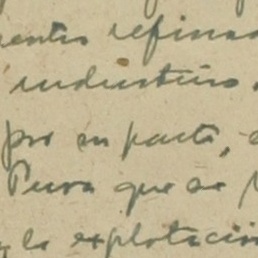 refinad
industria.
por su parte,
Para que se
y la explotación